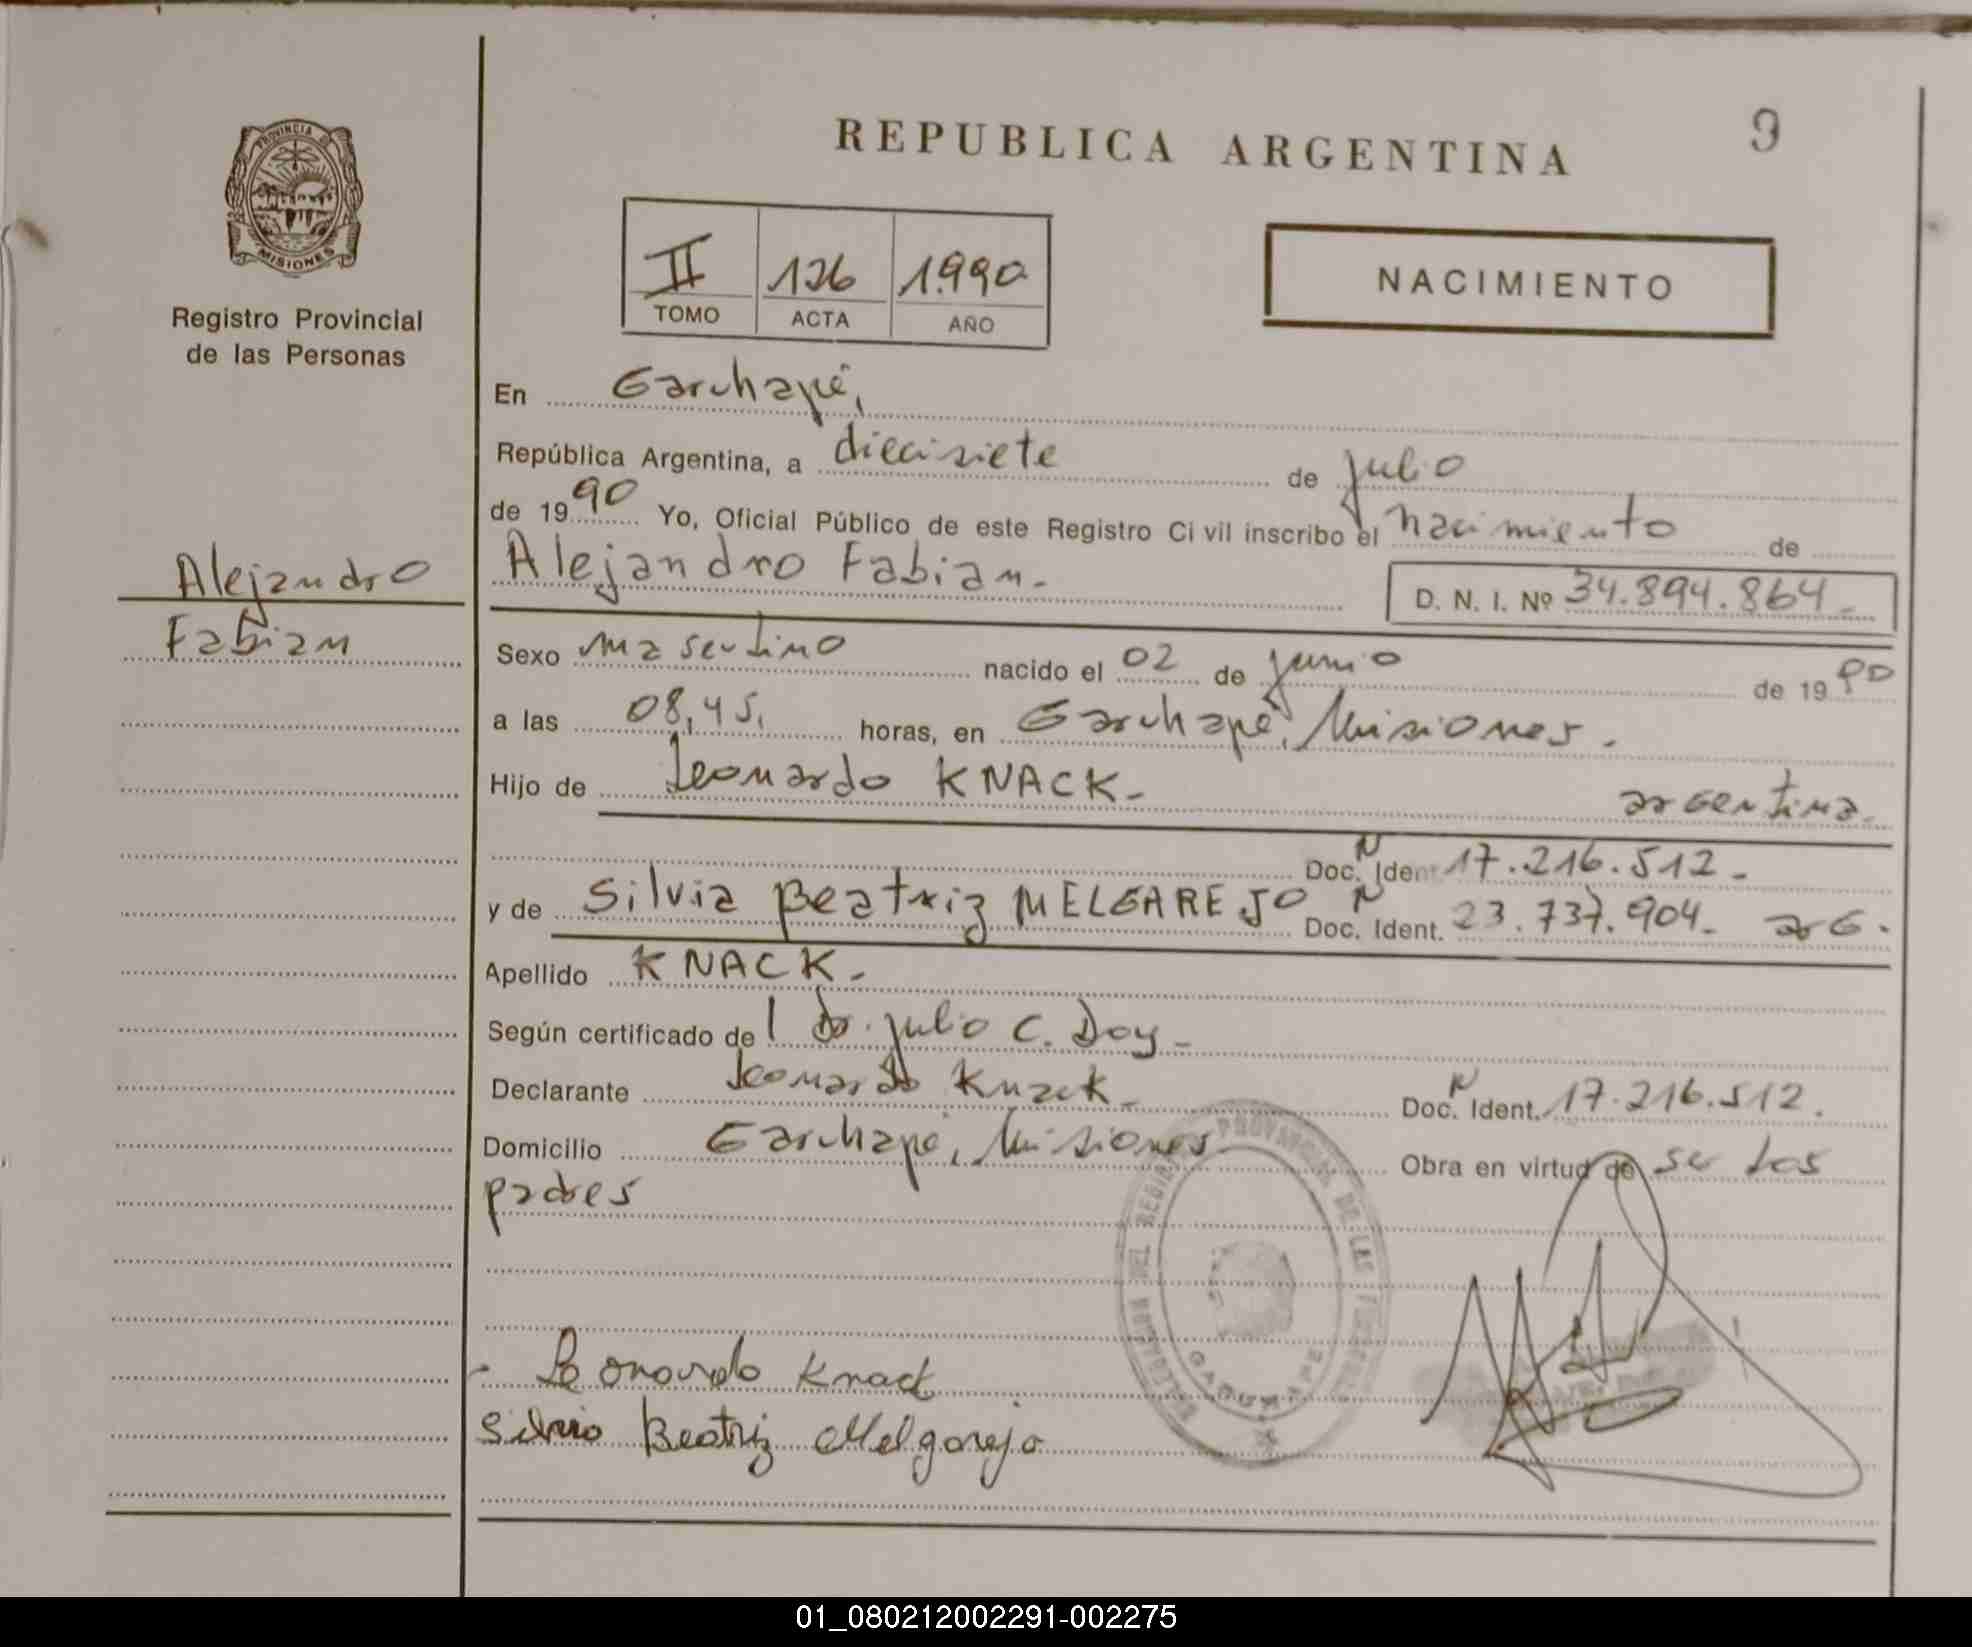 REPUBLICA ARGENTINA
9
PROVINCIA DE
MISIONES
Registro Provincial
de las Personas
II 126 1.990
TOMO ACTA AÑO
NACIMIENTO
En Garuhapé,
República Argentina, a diecisiete de julio
de 1990 Yo, Oficial Público de este Registro Civil inscribo el nacimiento de
Alejandro Fabian.-
D. N. I. Nº 34.894.864.-
Alejandro
Fabian
Sexo masculino nacido el 02 de junio de 1990
a las 08,45, horas, en Garuhapé, Misiones.
Hijo de Leonardo KNACK.- argentina.
Doc. N Ident 17.216.512.-
y de Silvia Beatriz MELGAREJO Doc. N Ident. 23.737.904.- arG.
Apellido KNACK.-
Según certificado del Dr. Julio C. Doy.-
Declarante Leonardo Knack.- Doc. N Ident. 17.216.512.
Domicilio Garuhapé, Misiones Obra en virtud de ser los
padres
PROVINCIAL DE LAS
GARUHAPE
- Leonardo Knack
Silvia Beatriz Melgarejo
01_080212002291-002275